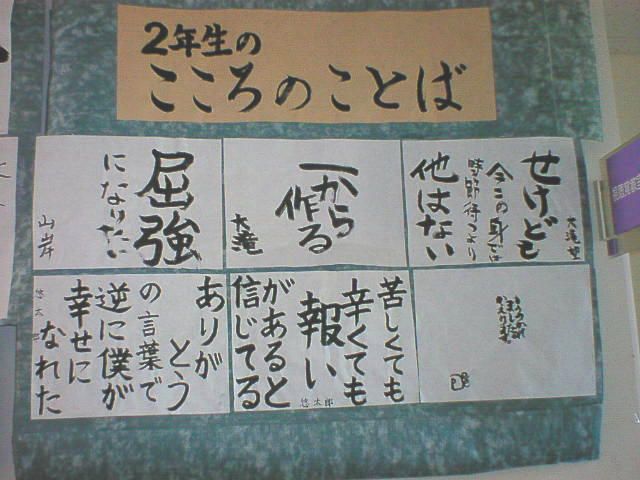 2年生の
こころのことば
せけども
今この身では
時節待つより
他はない
大滝
一から
作る
大滝
屈強
になりたい
山岸
苦しくても
辛くても
報い
があると
信じてる
悠太郎
ありが
とう
の言葉で
逆に僕が
幸せに
なれた
悠太